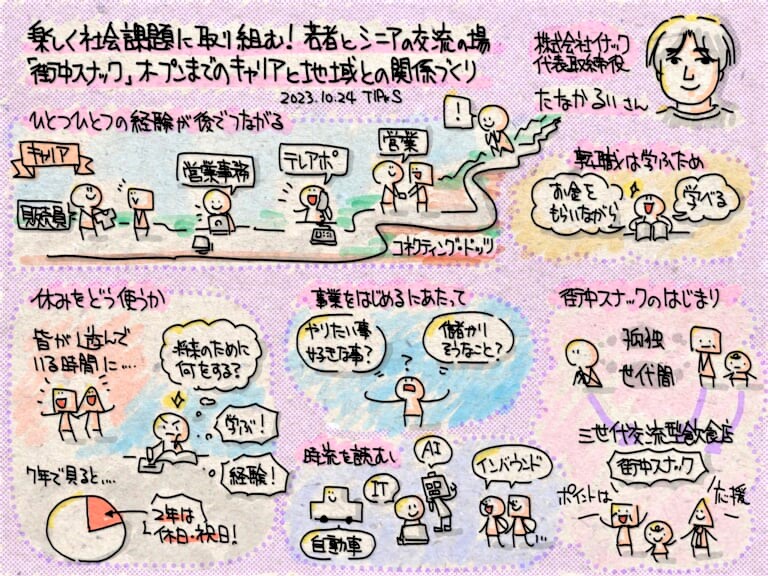 楽しく社会課題に取り組む！若者とシニアの交流の場
「街中スナック」オープンまでのキャリアと地域との関係づくり
2023.10.24 TIPS
株式会社イナック
代表取締役
たなかるいさん
ひとつひとつの経験が後でつながる
キャリア
販売員
営業事務
テレアポ
営業
！
コネクティング・ドッツ
転職は学ぶため
お金を
もらいながら
学べる
休みをどう使うか
皆が遊んで
いる時間に…
将来のために
何をする？
学ぶ！
経験！
7年で見ると…
2年は
休日・祝日！
事業をはじめるにあたって
やりたい事
好きな事？
儲かり
そうなこと？
？
時流を読む
自動車
IT
AI
インバウンド
街中スナックのはじまり
孤独
世代間
三世代交流型飲食店
街中スナック
ポイントは
応援